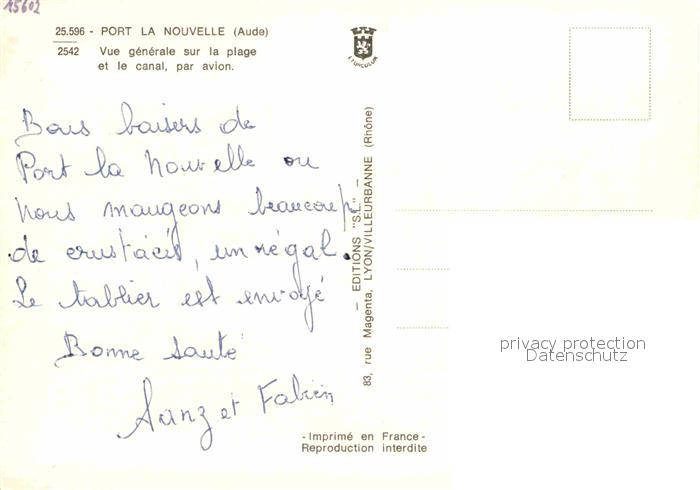 15602
25.596 - PORT LA NOUVELLE (Aude)
2542 Vue générale sur la plage
et le canal, par avion.
Bons baisers de
Port la Nouvelle ou
nous mangeons beaucoup
de crustacés, un régal.
Le tablier est envoyé
Bonne santé
et Fabien
— EDITIONS "S.L." —
83, rue Magenta, LYON/VILLEURBANNE (Rhône)
privacy protection
Datenschutz
-Imprimé en France-
Reproduction interdite